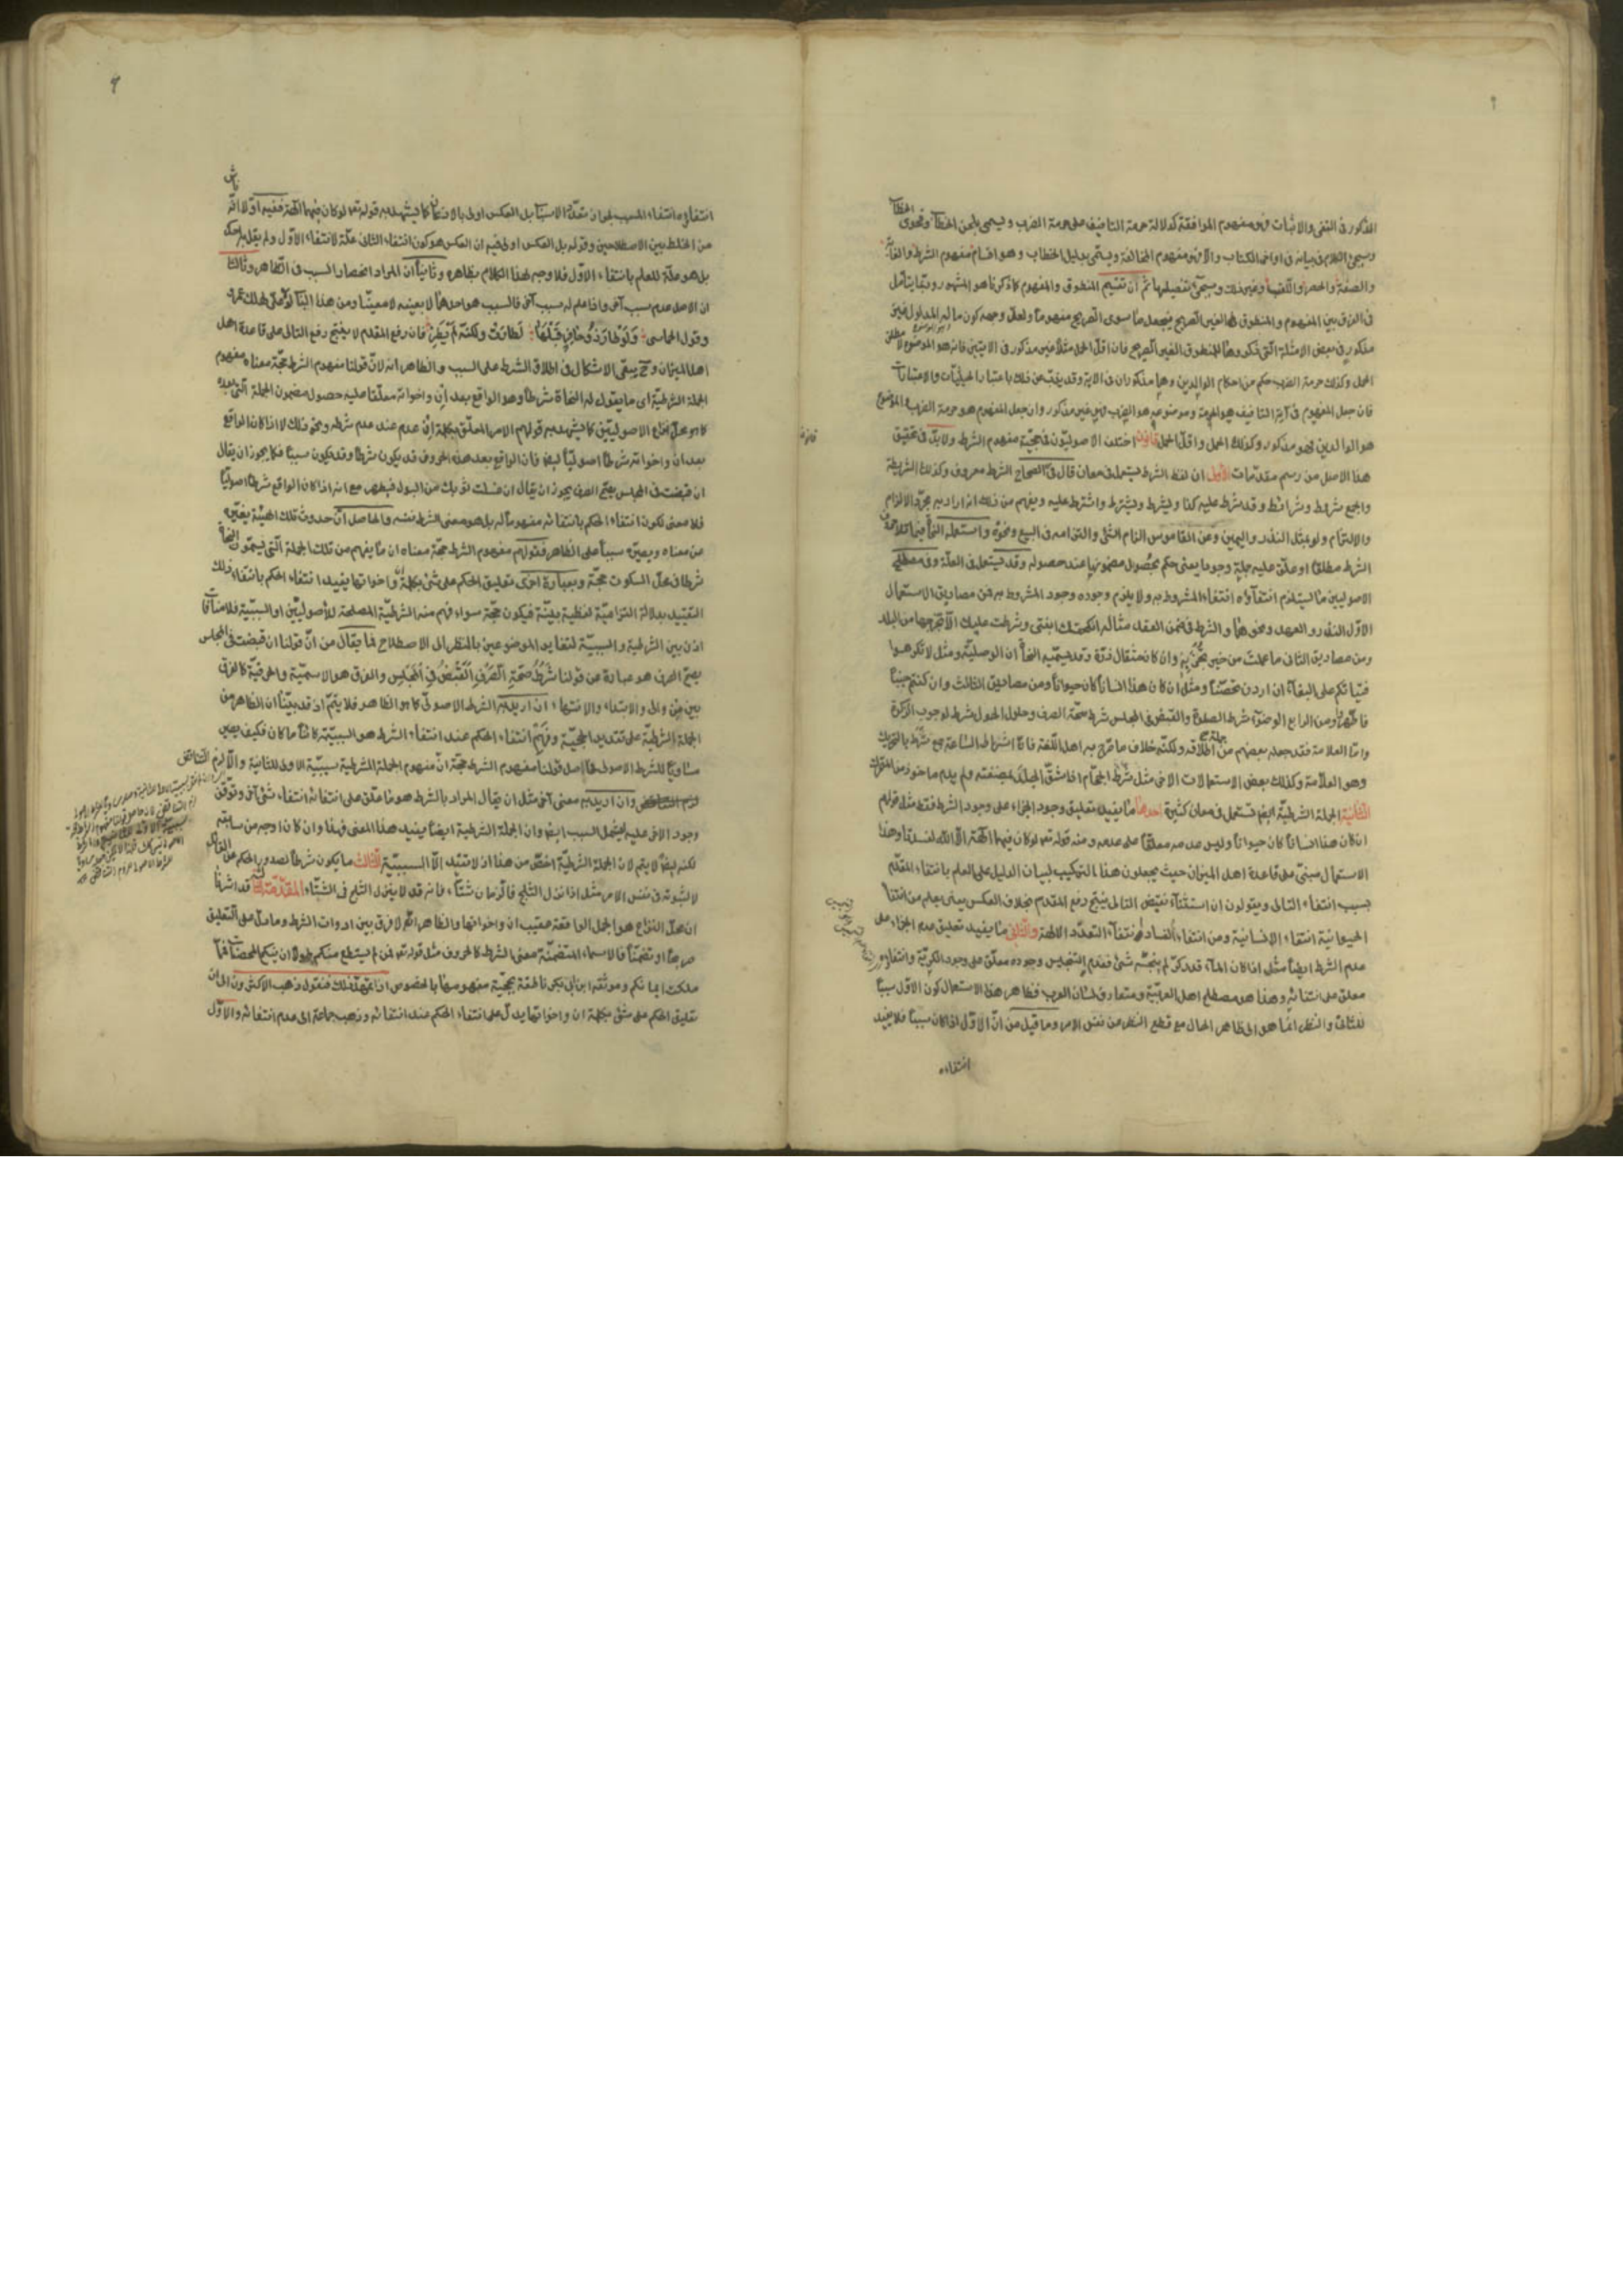 المذكور فى النفى والاثبات فهو مفهوم الموافقة كدلالة حرمة التافيف على حرمة الضرب ويسمى بلحن الخطاب وفحوى الخطاب
وسيجئ الكلام فى بيانه فى اواخر الكتاب والا فهو مفهوم المخالفة ويسمى بدليل الخطاب وهو اقسام مفهوم الشرط والغاية
والصفة والحصر واللقب وغير ذلك وسيجئ تفصيلها ثم ان تقسيم المنطوق والمفهوم كما ذكرنا هو المشهور وربما يتأمل
فى الفرق بين المفهوم والمنطوق الغير الصريح فيجعل ما سوى الصريح مفهوما ولعل وجهه كون ما له المدلول غير
مذكور فى بعض الامثلة التى ذكروها للمنطوق الغير الصريح فان اقل الحمل مثلا غير مذكور فى الايتين فانه هو الموضوع لا مطلق
الحمل وكذلك حرمة الضرب حكم من احكام الوالدين وهما مذكوران فى الاية وقد يذب عن ذلك باعتبار الحيثيات والاعتبارات
فان جعل المفهوم فى آية التافيف هو الحرمة وموضوعه هو الضرب فهو غير مذكور وان جعل المفهوم هو حرمة الضرب والموضوع
هو الوالدين فهو مذكور وكذلك الحمل واقل الحمل قانون اختلف الاصوليون فى حجية مفهوم الشرط ولا بد فى تحقيق
هذا الاصل من رسم مقدمات الاولى ان لفظ الشرط يستعمل فى معان قال فى الصحاح الشرط معروف وكذلك الشريطة
والجمع شروط وشرائط وقد شرط عليه كذا ويشرط ويشترط واشترط عليه ويفهم من ذلك انه اراد به مجرد الالزام
والالتزام ولو بمثل النذر واليمين وعن القاموس الزام الشئ والتزامه فى البيع ونحوه واستعمله النحاة فيما تلا حرف
الشرط مطلقا او علق عليه جملة وجودا يعنى حكم بحصول مضمونها عند حصوله وقد يستعمل فى العلة وفى مصطلح
الاصوليين ما يستلزم انتفاؤه انتفاء المشروط به ولا يلزم وجوده وجود المشروط به فمن مصاديق الاستعمال
الاول النذر والعهد ونحوهما والشرط فى ضمن العقد مثاله انكحتك ابنتى وشرطت عليك الا تخرجها من البلد
ومن مصاديق الثانى ما عملت من خير تجز به وان كان مثقال ذرة وقد يسميه النحاة ان الوصلية ومثل لا تكرهوا
فتياتكم على البغاء ان اردن تحصنا ومثل ان كان هذا انسانا كان حيوانا ومن مصاديق الثالث وان كنتم جنبا
فاطهروا ومن الرابع الوضوء شرط الصلوة والقبض فى المجلس شرط صحة الصرف وحلول الحول شرط لوجوب الزكوة
واما العلامة فقد جعله بعضهم من اطلاقه ولكنه خلاف ما صرح به اهل اللغة فان اشراط الساعة جمع شرط بالتحريك
وهو العلامة وكذلك بعض الاستعمالات الاخر مثل شرط الحجام اذا شق الجلد بمبضعته ولم يدم ماخوذ من المتحرك
الثانية الجملة الشرطية ايضا تستعمل فى معان كثيرة احدها ما يفيد تعليق وجود الجزاء على وجود الشرط فقط مثل قولهم
ان كان هذا انسانا كان حيوانا وليس عدمه معلقا على عدمه ومنه قوله تعالى لو كان فيهما الهة الا الله لفسدتا وهذا
الاستعمال مبنى على قاعدة اهل الميزان حيث يجعلون هذا التركيب لبيان الدليل على العلم بانتفاء المقدم
بسبب انتفاء التالى ويقولون ان استثناء نقيض التالى ينتج رفع المقدم بخلاف العكس يعنى يعلم من انتفاء
الحيوانية انتفاء الانسانية ومن انتفاء الفساد انتفاء التعدد الالهة والثانى ما يفيد تعليق عدم الجزاء على
عدم الشرط ايضا مثل اذا كان الماء قدر كر لم ينجسه شئ فعدم التنجيس وجوده معلق على وجود الكرية وانتفاؤه
معلق على انتفائه وهذا هو مصطلح اهل العربية ومتعارف لسان العرب فظاهر هذا الاستعمال كون الاول سببا
للثانى والنظر انما هو الى ظاهر الحال مع قطع النظر عن نفس الامر وما قيل من ان الاول اذا كان سببا فلا يفيد
انتفاءه
قانون
انتفاؤه انتفاء المسبب لجواز تعدد الاسباب بل العكس اولى بالاذعان كما يشهد به قوله تعالى لو كان فيهما الهة ففيه اولا انه
من الخلط بين الاصطلاحين وقوله بل العكس اولى فيه ان العكس هو كون انتفاء الثانى علة لانتفاء الاول ولم يقل به احد
بل هو علة للعلم بانتفاء الاول فلا وجه لهذا الكلام بظاهره وثانيا ان المراد انحصار السبب فى الظاهر وثالثا
ان الاصل عدم سبب آخر واذا علم له سبب آخر فالسبب هو احدهما لا بعينه لا معينا ومن هذا الباب لولا على لهلك عمر
وقول الحماسى ولو طار ذو حافر قبلها لطارت ولكنه لم يطر فان رفع المقدم لا ينتج رفع التالى على قاعدة اهل
اهل الميزان وح يبقى الاشكال فى اطلاق الشرط على السبب والظاهر انه لان قولنا مفهوم الشرط حجة معناه مفهوم
الجملة الشرطية اى ما يقول له النحاة شرطا وهو الواقع بعد ان واخواته معلقا عليه حصول مضمون الجملة التى بعده
كما هو محل نزاع الاصوليين كما يشهد به قولهم الامر المعلق بكلمة ان عدم عند عدم شرطه ونحو ذلك لا اذا كان الواقع
بعد ان واخواته شرطا اصوليا ايضا فان الواقع بعد هذه الحروف قد يكون شرطا وقد يكون سببا فكما يجوز ان يقال
ان قبضت فى المجلس يصح الصرف يجوز ان يقال ان غسلت ثوبك من البول فيطهر مع انه اذا كان الواقع شرطا اصوليا
فلا معنى لكون انتفاء الحكم بانتفائه مفهوما له بل هو معنى الشرط نفسه والحاصل ان حدوث تلك الهيئة يغيره
من معناه ويصيره سببا على الظاهر فقولهم مفهوم الشرط حجة معناه ان ما يفهم من تلك الجملة التى يسميه النحاة
شرطا فى محل السكوت حجة وبعبارة اخرى تعليق الحكم على شئ بكلمة ان واخواتها يفيد انتفاء الحكم بانتفاء ذلك
التقييد بدلالة التزامية لفظية بينة فيكون حجة سواء فهم منه الشرطية المصطلحة للاصوليين او السببية فلا منافاة
اذن بين الشرطية والسببية لتغاير الموضوعين بالنظر الى الاصطلاح فما يقال من ان قولنا ان قبضت فى المجلس
يصح الصرف هو عبارة عن قولنا شرط صحة الصرف القبض فى المجلس والفرق هو الاسمية والحرفية كالفرق
بين من والى والابتداء والانتهاء ان اريد به الشرط الاصولى كما هو الظاهر فلا يتم اذ قد بينا ان الظاهر من
الجملة الشرطية على تقدير الحجية وفهم انتفاء الحكم عند انتفاء الشرط هو السببية كائنا ما كان فكيف يصير
مساويا للشرط الاصولى فاصل قولنا مفهوم الشرط حجة ان مفهوم الجملة الشرطية سببية الاولى للثانية والا لزم التناقض
وان اريد به معنى آخر مثل ان يقال المراد بالشرط هو ما علق على انتفائه انتفاء شئ آخر وتوقف
وجود الاخر عليه ليشمل السبب ايضا وان الجملة الشرطية ايضا يفيد هذا المعنى فهذا وان كان اوجه من سابقه
لكنه ايضا لا يتم لان الجملة الشرطية اخص من هذا اذ لا تفيد الا السببية الثالث ما يكون شرطا لصدور الحكم عن القائل
لا لثبوته فى نفس الامر مثل اذا نزل الثلج فالزمان شتاء فانه قد لا ينزل الثلج فى الشتاء المقدمة الثالثة قد اشرنا
ان محل النزاع هو الجمل الواقعة عقيب ان واخواتها والظاهر انه لا فرق بين ادوات الشرط وما دل على التعليق
صريحا او تضمنا فالاسماء المتضمنة معنى الشرط كالحروف مثل قوله تعالى فمن لم يستطع منكم طولا ان ينكح المحصنات فما
ملكت ايمانكم وموثقة ابن بكير ناطقة بحجية مفهومها بالخصوص اذا تمهد ذلك فنقول ذهب الاكثرون الى ان
تعليق الحكم على شئ بكلمة ان واخواتها يدل على انتفاء الحكم عند انتفائه وذهب جماعة الى عدم انتفائه والاول